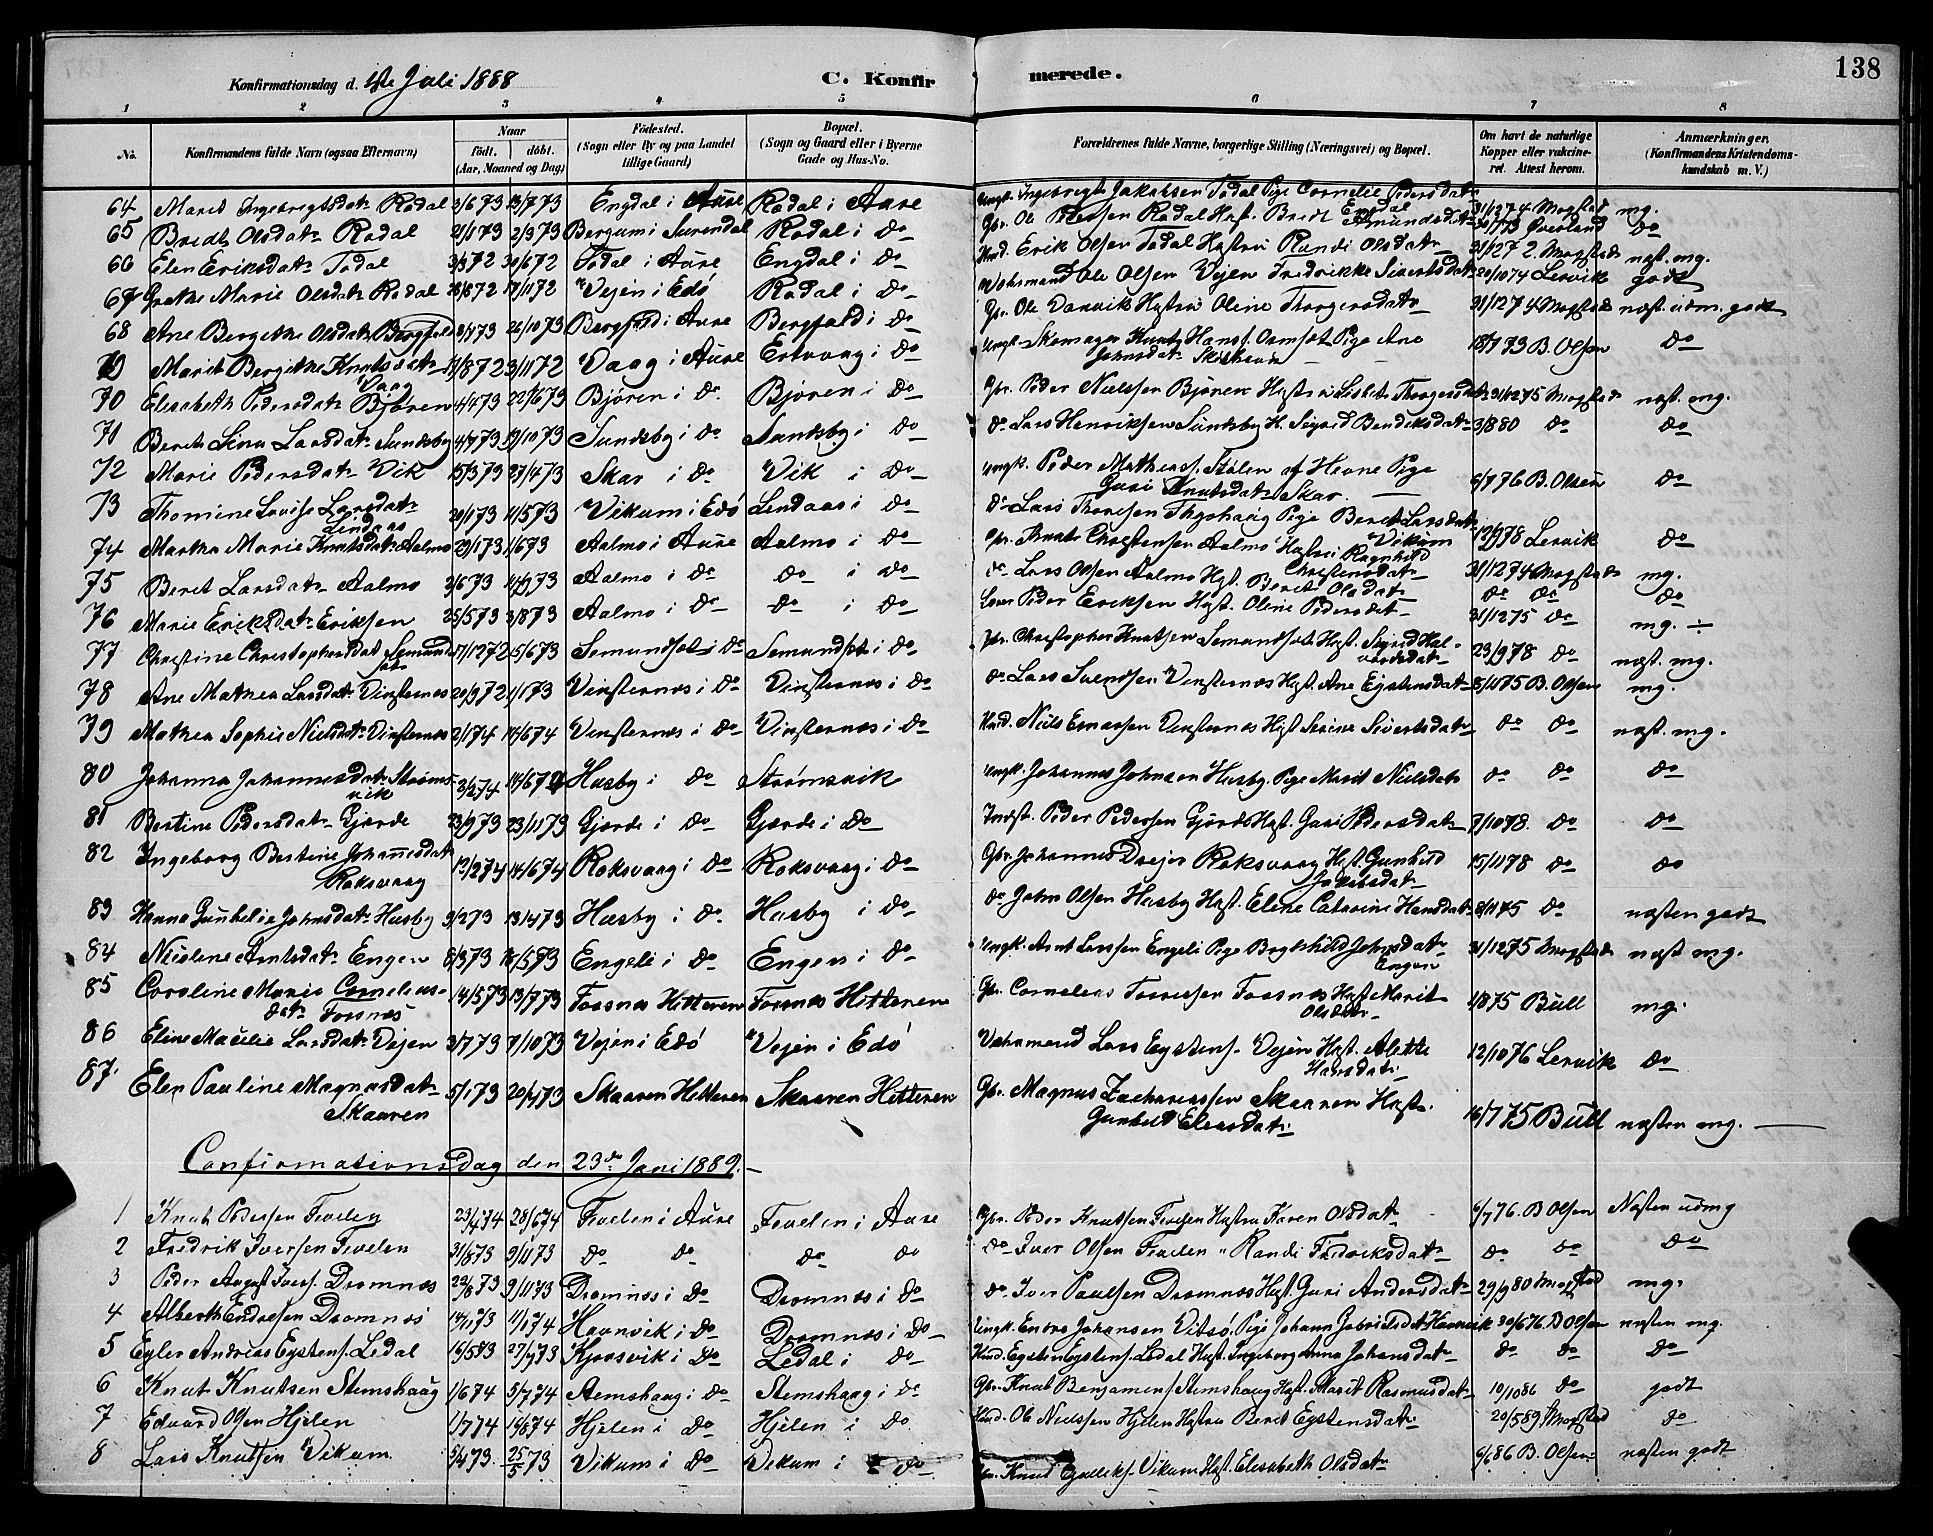 Konfirmationsdag d. 1ste Juli 1888 C. Konfir merede. 138
1 2 3 4 5 6 7 8
No. Konfirmandens fulde Navn (ogsaa Efternavn) Naar født. døbt. (Aar, Maaned og Dag) Fødested. (Sogn eller By og paa Landet tillige Gaard) Bopæl. (Sogn og Gaard eller i Byerne Gade og Hus-No. Forældrenes fulde Navne, borgerlige Stilling (Næringsvei) og Bopæl. Om havt de naturlige Kopper eller vakcineret. Attest herom. Anmærkninger. (Konfirmandens Kristendomskundskab m. V.)
64 Marit Ingebrigtsdatr Rodal 3/6 73 13/7 73 Engdal i Aure Rodal i Aure Ungk. Ingebrigt Jakobsen Todal Pige Cornelie Pedersdatr Engdal 31/12 74 Mogstad mg.
65 Bredt Olsdatr Rodal 21/1 73 2/3 73 Bergum i Surendal Rodal i do Gbr. Ole Pedersen Rodal Hust. Bredt Amundsdatr Qverland do
66 Elen Eriksdatr Todal 3/3 72 30/6 72 Todal i Aure Engdal i do Husd. Erik Olsen Todal Hustru Randi Olsdatr 31/12 72. Mogstad næst. mg.
67 Grethe Marie Olsdatr Rodal 28/8 72 17/11 72 Vejen i Edø Rodal i do Ole Olsen Vejen Fredrikke Sivertsdatr 20/10 74 Lervik godt
68 Ane Bergithe Olsdatr Bergfald 26/10 73 Bergfald i Aure Bergfald i do Gbr. Ole Hustru Oline Thorgersdatr 31/12 74 Mogstad næst. udm. godt
69 Marit Bergithe Knutsdatr Vaag 3/11 72 Vaag i Aure Ertvaag i do Ungk. Skomager Knut Hans. Pige Ane Johnsdatr 18/7 73 B. Olsen do
70 Elisabeth Pedersdatr Bjøren 4/4 73 22/6 73 Bjøren i do Bjøren i do Gbr. Peder Nielssen Bjøren Hustru Lisbet Thorgersdatr 31/12 75 Mogstad næst. mg.
71 Berit Lina Larsdatr Sundsby 4/7 73 19/10 73 Sundsby i do Sundsby i do do Lars Henriksen Sundsby H. Sigrid Bendiksdatr 3/8 80 do do
72 Marie Pedersdatr Vik 15/3 73 27/4 73 Skar i do Vik i do Ungk. Peder Mathiass. Stølen af Hevne Pige Guri Knutsdatr Skar 6/7 76 B. Olsen do
73 Thomine Lovise Larsdatr Lindaas 20/1 73 11/5 73 Vikum i Edø Lindaas i do do Lars Thoresen Pige Beret Larsdatr Vikum 12/9 78 Lervik do
74 Martha Marie Knutsdatr Aalmo 29/1 73 1/6 73 Aalmo i Aure Aalmo i do Gbr. Knut Christensen Aalmo Hustru Ragnhild Christensdatr 31/12 74 Mogstad mg.
75 Berit Larsdatr Aalmo 3/6 73 14/9 73 Aalmo i do do i do do Lars Olsen Aalmo Hust. Berit Olsdatr do do do
76 Marie Eriksdatr Eriksen 25/5 73 3/8 73 Aalmo i do do i do Peder Eriksen Hust. Oline Pedersdatr 31/12 75 do mg. ÷
77 Christine Christophersdat Semundset 17/12 72 15/6 73 Semundset i do Semundset i do Gbr. Christopher Knutsen Semundset Hust. Sigrid Halvorsdatr 23/9 78 do næst. mg.
78 Ane Mathea Larsdatr Vinsternes 20/9 72 1/1 73 Vinsternes i do Vinsternes i do do Lars Svendsen Vinsternes Hust. Ane Eystensdatr 8/11 75 B. Olsen mg.
79 Mathea Sophie Nielsdatr Vinsternes 2/1 74 14/6 74 Vinsternes i do Vinsternes i do Husd. Niels Ernassen Vinsternes Hust Serine Sivertsdatr do do næst. mg.
80 Johanna Johannesdatr Strømsvik 3/2 74 14/6 74 Husby i do Strømsvik Ungk. Johannes Johnsen Husby. Pige Marit Nielsdatr do do do
81 Bertine Pedersdatr Gjærde 23/9 73 23/11 73 Gjerde i do Gjerde i do Indst. Peder Pedersen Gjørde Hust. Guri Pedersdatr 7/10 78. do do
82 Ingeborg Bertine Johannesdatr Roksvaag 13/2 74 14/6 74 Roksvaag i do Roksvaag i do Gbr. Johannes Roksvaag Hust. Gunhild Jakobsdatr 15/11 78 do do
83 Hanna Gunhelie Johnsdatr Husby 9/2 73 13/4 73 Husby i do Husby i do do John Olsen Husby Hust. Elene Catrine Hansdatr 8/11 75 do næsten godt
84 Nicoline Arntsdatr Engen 8/3 73 18/5 73 Engeli i do Engen i do Ungk. Arnt Larssen Engeli Pige Johnsdatr Engen 31/12 75 Mogstad næst mg.
85 Caroline Marie Corneliusdatr Forsnes 14/5 73 13/7 73 Forsnes Hitteren Forsnes Hitteren Gbr. Cornelius Forsnes Hust. Marit Olsdatr 1/8 75 Bull mg.
86 Eline Macelie Larsdatr Vejen 3/7 73 7/10 73 Vejen i Edø Vejen i Edø Lars Eystens. Vejen Hust. Alette Hansdatr 12/10 76 Lervik do
87. Elen Pauline Magnusdatr Skaaren 5/1 73 20/4 73 Skaaren Hitteren Skaaren Hitteren Gbr. Magnus Zachariassen Skaaren Hust. Gunhild Eliasdatr 16/7 75 Bull næsten mg.
Confirmationsdag den 23de Juni 1889.
1 Knut Pedersen Fevelen 23/4 74 28/6 74 Fevelen i Aure Fevelen i Aure Gbr. Peder Knutsen Fevelen Hustru Karen Olsdatr 6/7 76. B Olsen Næsten udmg
2 Fredrik Iversen Fevelen 31/8 73 9/11 73 do do do do do Iver Olsen Fevelen " Randi Fredriksdatr do do do
3 Peder August Ivers. Dromnes 22/8 73 9/11 73 Dromnes i do Dromnes i do do Iver Paulsen Dromnes Hust. Guri Andersdatr 29/9 80 Mogstad mg.
4 Alberth Endresen Dromnes 11/1 74 Havnvik i do Dromnes i do Ungk. Endre Johansen Vitsø. Pige Johanna Gabrielsdat Havnvik 30/6 76. B Olsen næsten mg.
5 Eyler Andreas Eystens. Ledal 16/5 73 27/7 73 Kjorsvik i do Ledal i do Husd. Eysten Eystens. Ledal Hust. Ingeborg Anna Johansdatr do do do
6 Knut Knutsen Stemshaug 1/6 74 5/7 74 Stemshaug i do Stemshaug i do Gbr. Knut Benjamens. Stemshaug Hust. Marit Rasmusdatr 10/10 86 do godt
7 Edvard Olsen Hjelen 1/7 74 Hjelen i do Hjelen i do Husd. Ole Nielssen Hjelen Hustru Berit Eystensdatr 20/5 89 Mogstad do
8 Lars Knutsen Vikum 5/4 73. 25/5 73 Vikum i do Vikum i do Gbr. Knut Vikum Hust. Elisabeth Olsdatr 6/6 86 B. Olsen næsten godt